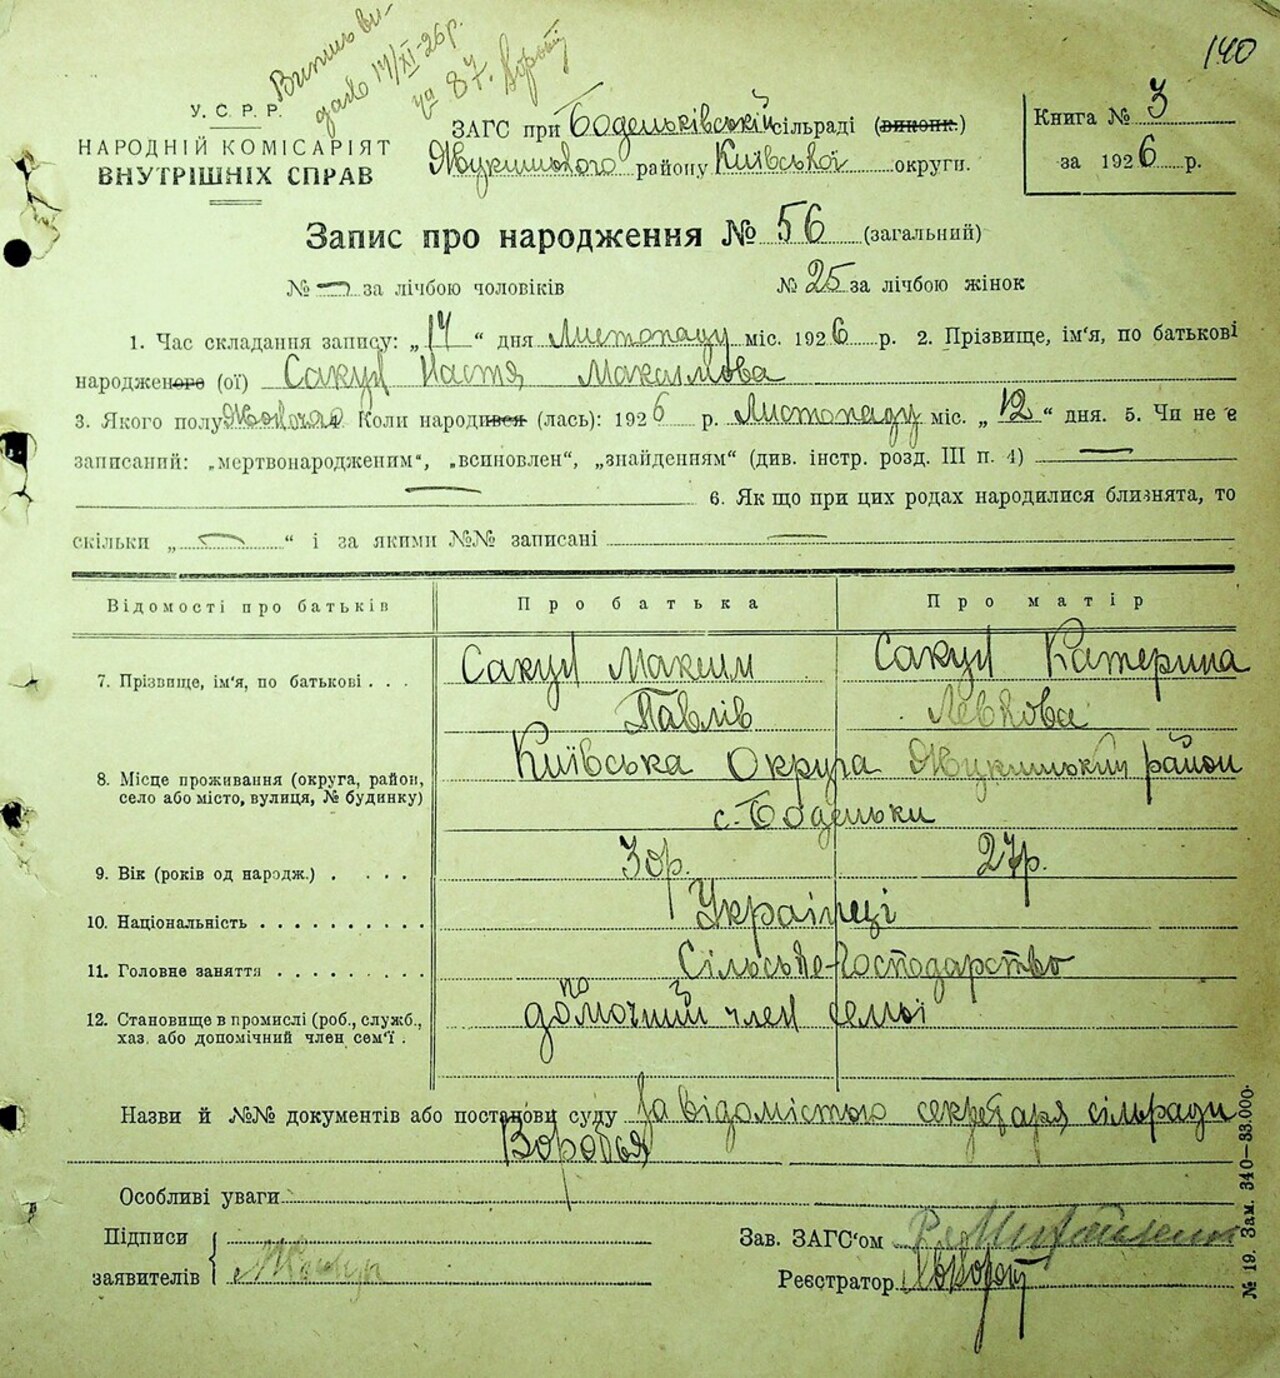 140
Випись ви-
дано 17/XI-26 р.
У.С.Р.Р.
НАРОДНІЙ КОМІСАРІЯТ
ВНУТРІШНІХ СПРАВ
ЗАГС при Боденьківській сільраді (виконк.)
району Київської округи.
Книга № 3
за 1926 р.
Запис про народження № 56 (загальний)
№ — за лічбою чоловіків № 25 за лічбою жінок
1. Час складання запису: „17“ дня Листопаду міс. 1926 р. 2. Прізвище, ім'я, по батькові
народженого (ої) Сакун Настя Максимова
3. Якого полу Жоноча 4 Коли народився (лась): 1926 р. Листопаду міс. „12“ дня. 5. Чи не є
записаний: „мертвонародженим“, „всиновлен“, „знайденням“ (див. інстр. розд. III п. 4) —
— 6. Як що при цих родах народилися близнята, то
скільки „—“ і за якими №№ записані —
Відомості про батьків Про батька Про матір
7. Прізвище, ім'я, по батькові . . . Сакун Максим Сакун Катерина
Павлів Левкова
8. Місце проживання (округа, район, Київська Округа район
село або місто, вулиця, № будинку) с. Боденьки
9. Вік (років од народж.) . . . . 30 р. 27 р.
10. Національність . . . . . . . . . . Українці
11. Головне заняття . . . . . . . . . Сільське-господарство
12. Становище в промислі (роб., служб., допомочний член семьї
хаз. або допомічний член сем'ї .
Назви й №№ документів або постанови суду За відомістью секретаря сільради
Воробья
Особливі уваги
Підписи
заявителів
Зав. ЗАГС'ом
Реєстратор
№ 19. Зам. 340—33.000.